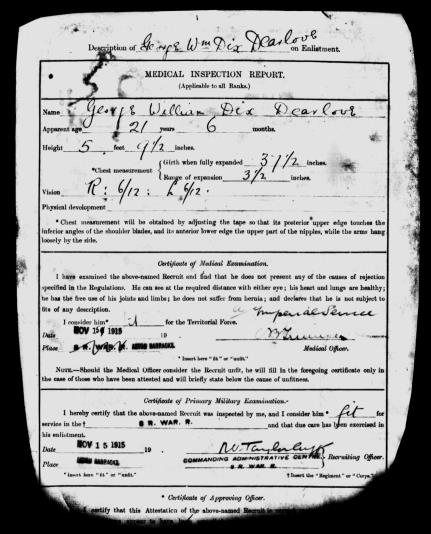 Description of George Wm Dix Dearlove on Enlistment.
MEDICAL INSPECTION REPORT.
(Applicable to all Ranks.)
Name George William Dix Dearlove
Apparent age 21 years 6 months.
Height 5 feet 9 1/2 inches.
*Chest measurement { Girth when fully expanded 37 1/2 inches.
Range of expansion 3 1/2 inches.
Vision R: 6/12: L 6/12.
Physical development
* Chest measurement will be obtained by adjusting the tape so that its posterior upper edge touches the
inferior angles of the shoulder blades, and its anterior lower edge the upper part of the nipples, while the arms hang
loosely by the side.
Certificate of Medical Examination.
I have examined the above-named Recruit and find that he does not present any of the causes of rejection
specified in the Regulations. He can see at the required distance with either eye; his heart and lungs are healthy;
he has the free use of his joints and limbs; he does not suffer from hernia; and declares that he is not subject to
fits of any description.
Imperial Service
I consider him* for the Territorial Force.
Date NOV 15 1915 19
Medical Officer.
Place
* Insert here "fit" or "unfit."
NOTE.—Should the Medical Officer consider the Recruit unfit, he will fill in the foregoing certificate only in
the case of those who have been attested and will briefly state below the cause of unfitness.
Certificate of Primary Military Examination.
I hereby certify that the above-named Recruit was inspected by me, and I consider him * fit for
service in the † R. WAR. R. and that due care has been exercised in
his enlistment.
Date NOV 15 1915 19
Recruiting Officer.
COMMANDING ADMINISTRATIVE CENTRE,
Place R. WAR. R.
* Insert here "fit" or "unfit." † Insert the "Regiment" or "Corps."
* Certificate of Approving Officer.
certify that this Attestation of the above-named Recruit is